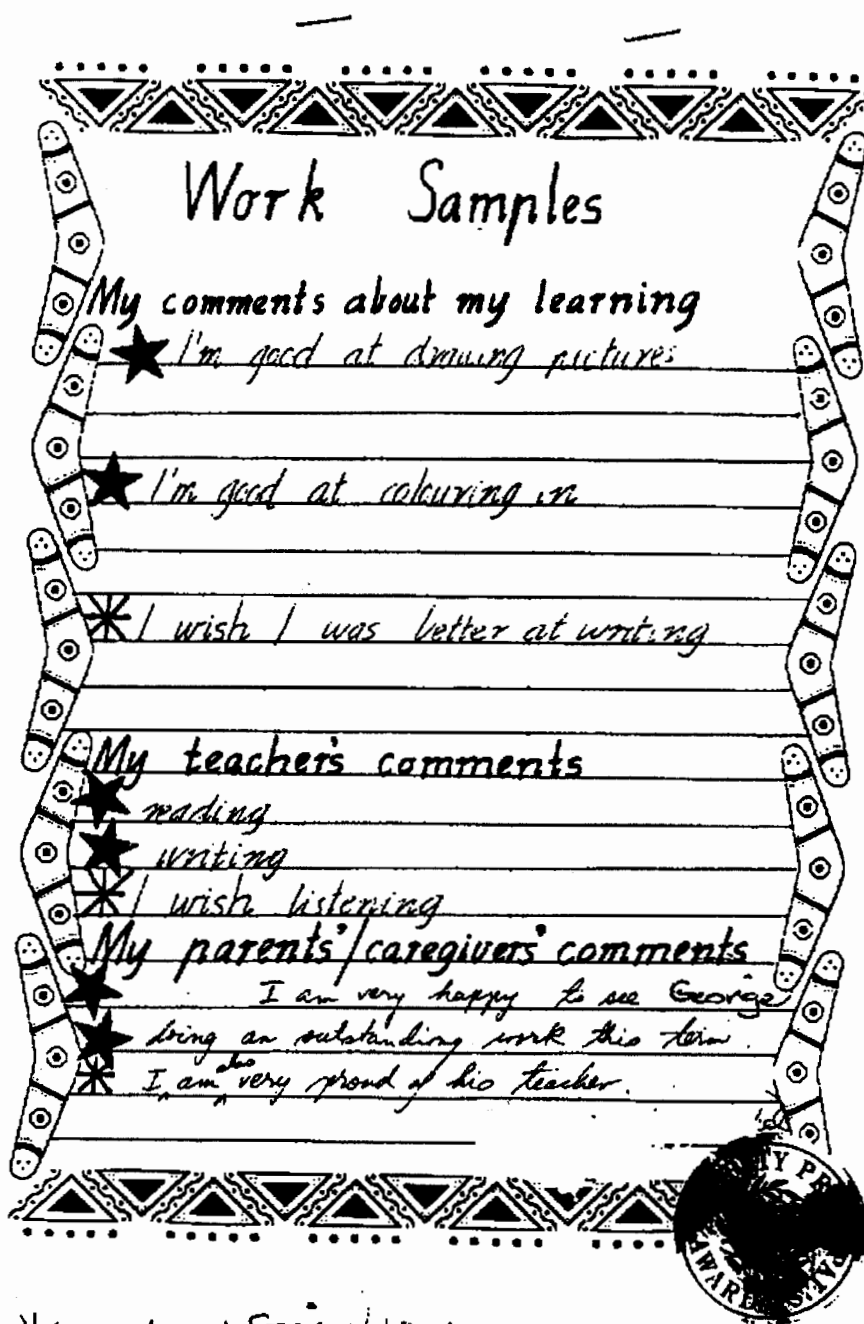 Work Samples
My comments about my learning
I'm good at drawing pictures
I'm good at colouring in
I wish I was better at writing
My teacher's comments
reading
writing
I wish listening
My parents'/caregivers' comments
I am very happy to see George
doing an outstanding work this term.
I am also very proud of his teacher.